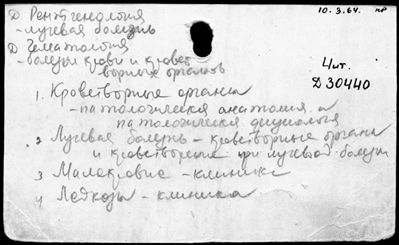 D Рентгенология
10.3.64.
- лучевая болезнь
D Гематология
- болезни крови и кровет
ворных органов
Чит.
D 30440
1. Кроветворные органы
- патологическая анатомия и
патологическая физиология
2 Лучевая болезнь - кроветворные органы
и кроветворение при лучевой болезни
3 Малокровие - клиника
4 Лейкозы - клиника